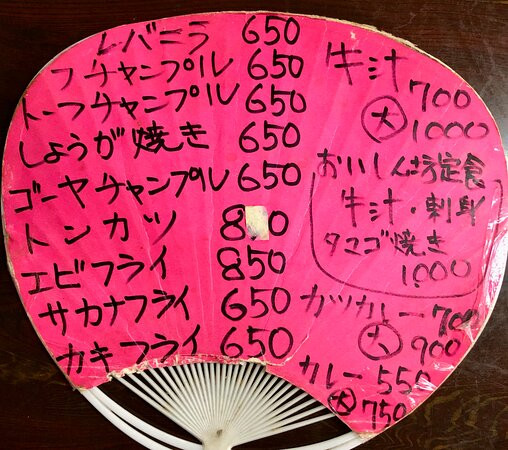 レバニラ 650
フチャンプル 650
トーフチャンプル 650
しょうが焼き 650
ゴーヤチャンプル 650
トンカツ 8 0
エビフライ 850
サカナフライ 650
カキフライ 650
牛汁 700
大 1000
おいしん坊定食
牛汁・刺身
タマゴ焼き
1000
カツカレー 700
大 900
カレー 550
大 750